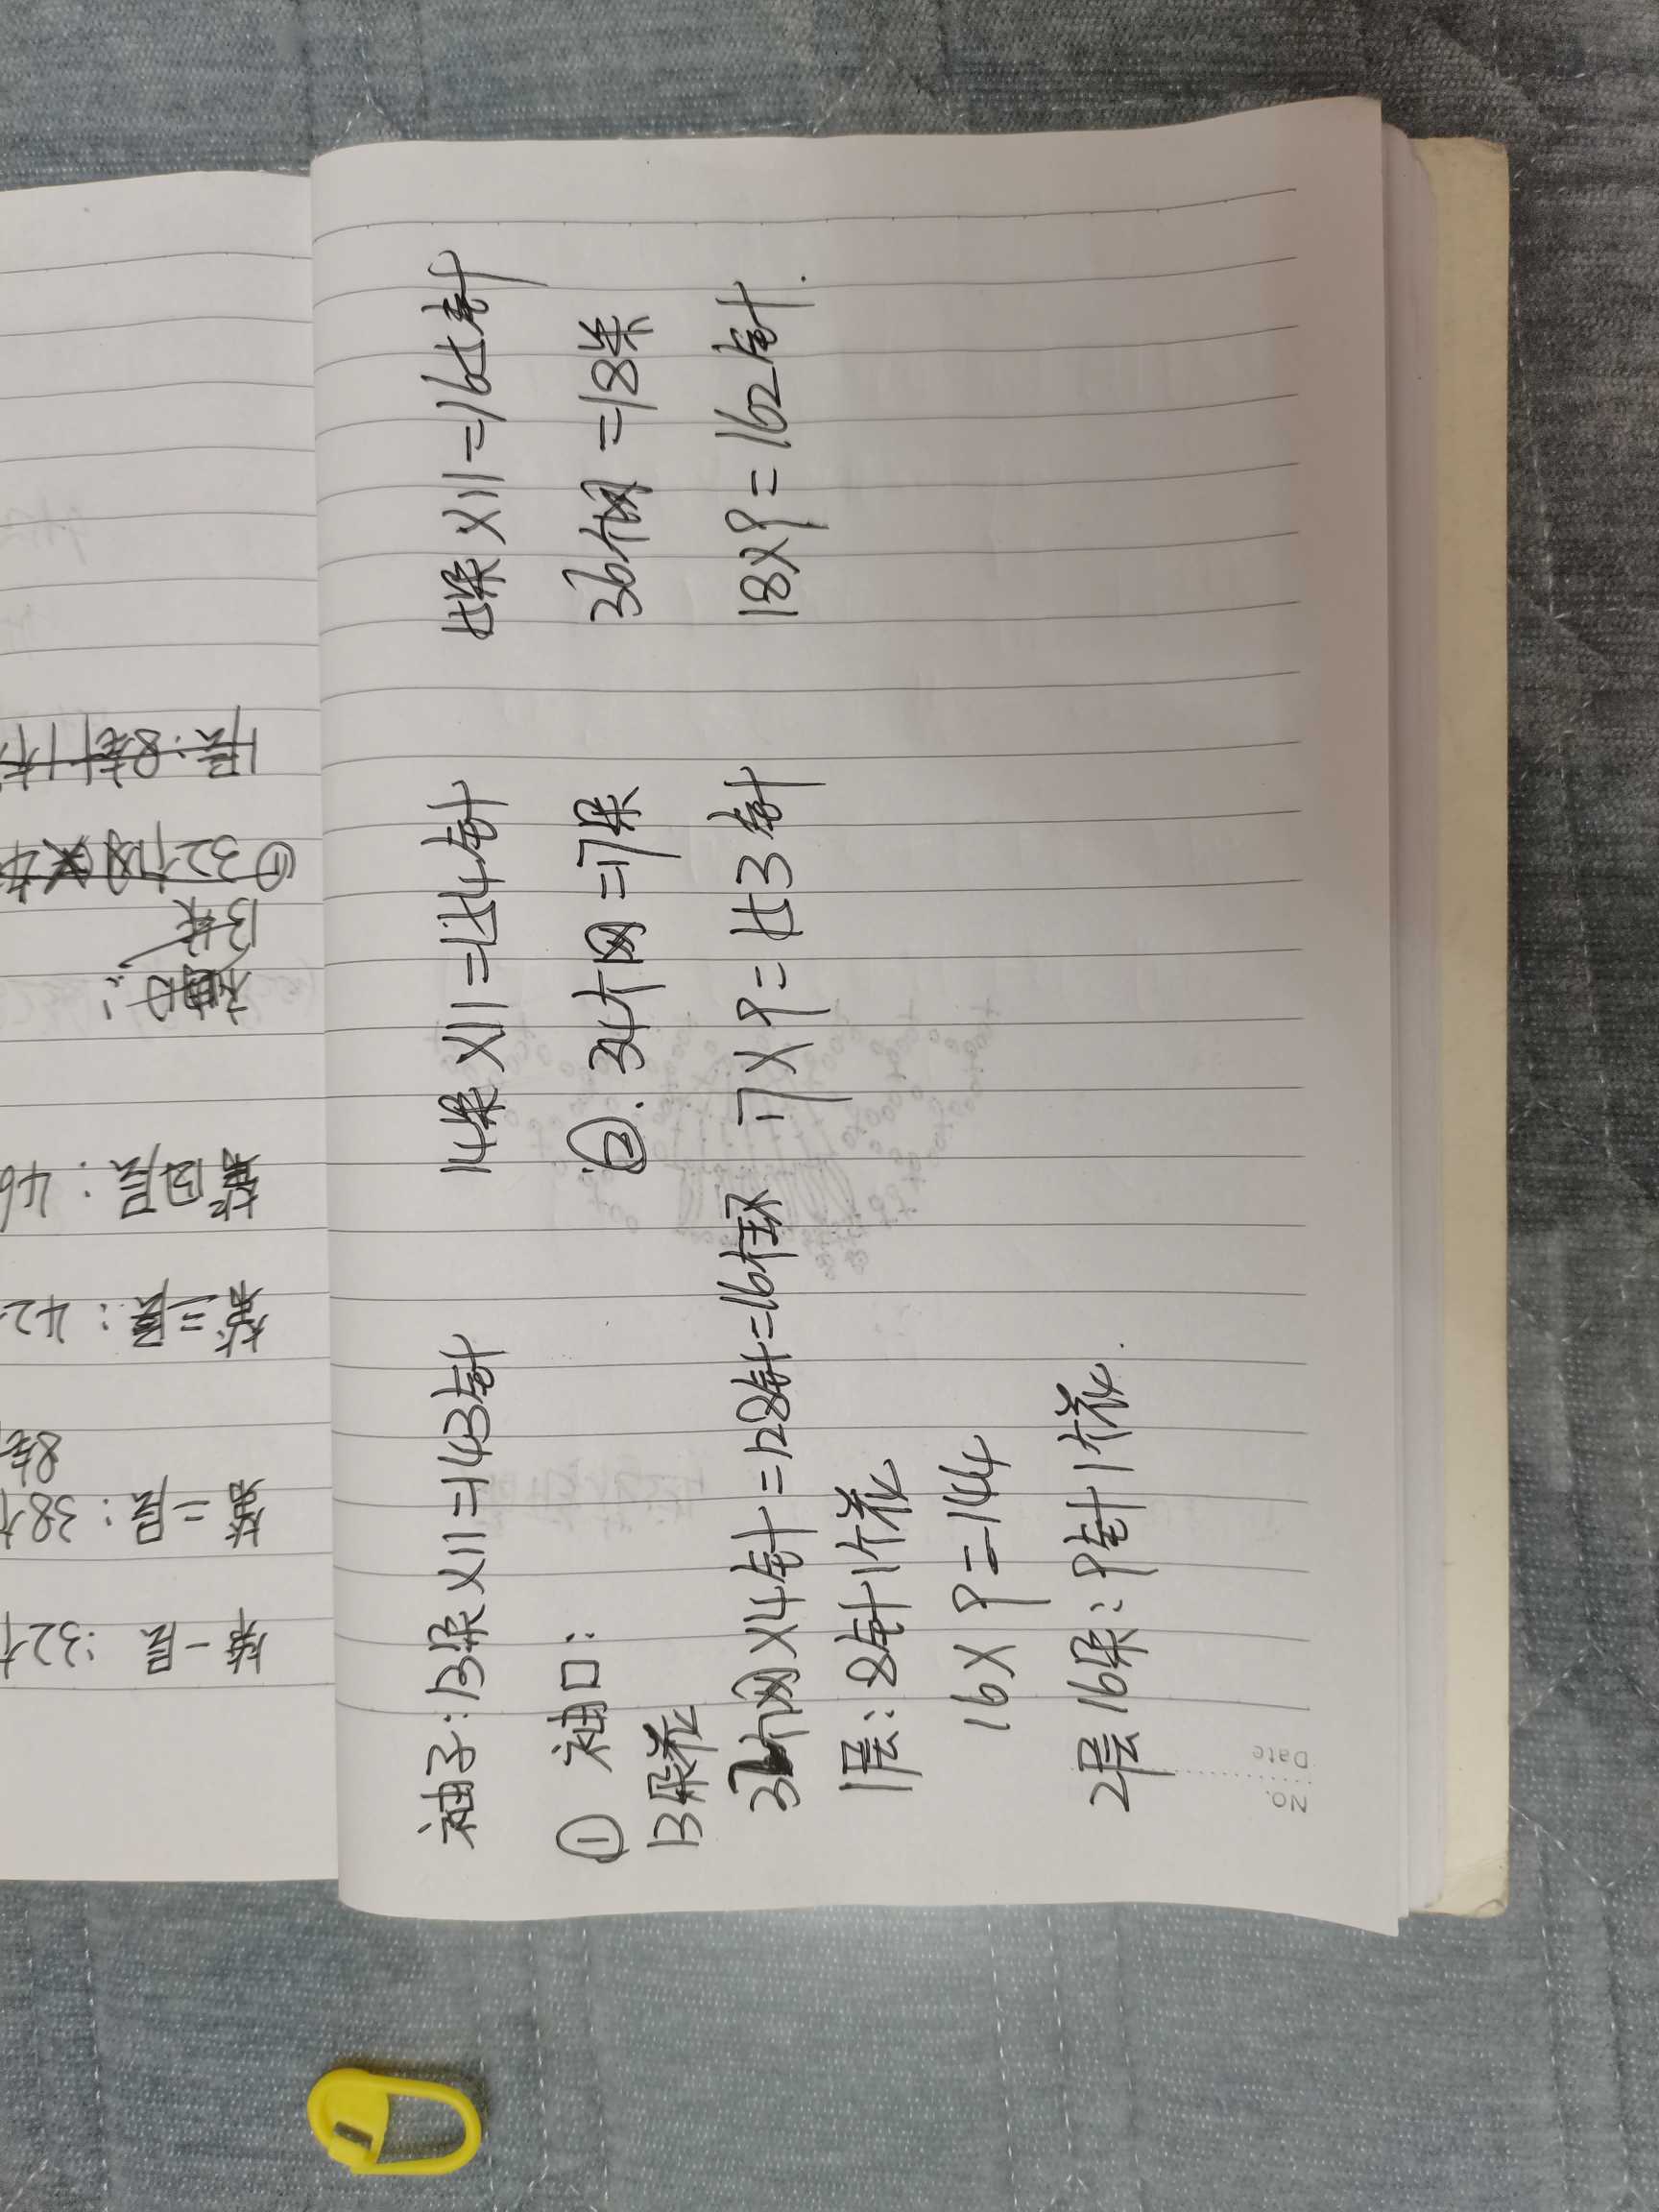 袖子:13朵×11=143针
14朵×11=154针
15朵×11=165针
① 袖口:
13朵花
32个网×4针=128针=16个环
1层:8针1个花
16×9=144
2层16朵:9针1个花.
②.34个网=17朵
17×9=153针
36个网=18朵
18×9=162针.
第一层:32个
第二层:38个
8针
第三层:42
第四层:46
袖口:
13朵
①32个网
1层:8针1个
No.
Date